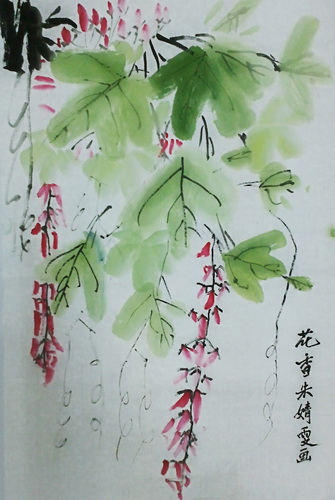 花香朱婧雯画